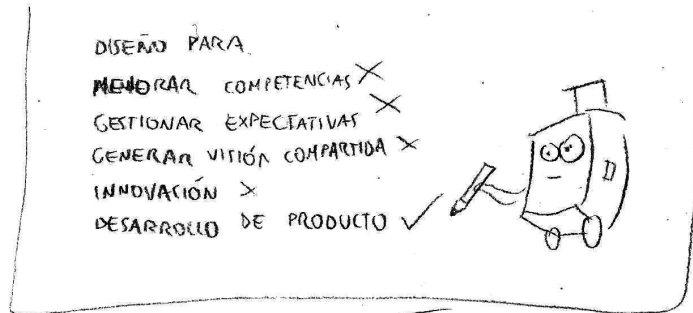 DISEÑO PARA
MEJORAR COMPETENCIAS X
GESTIONAR EXPECTATIVAS X
GENERAR VISIÓN COMPARTIDA X
INNOVACIÓN X
DESARROLLO DE PRODUCTO ✓